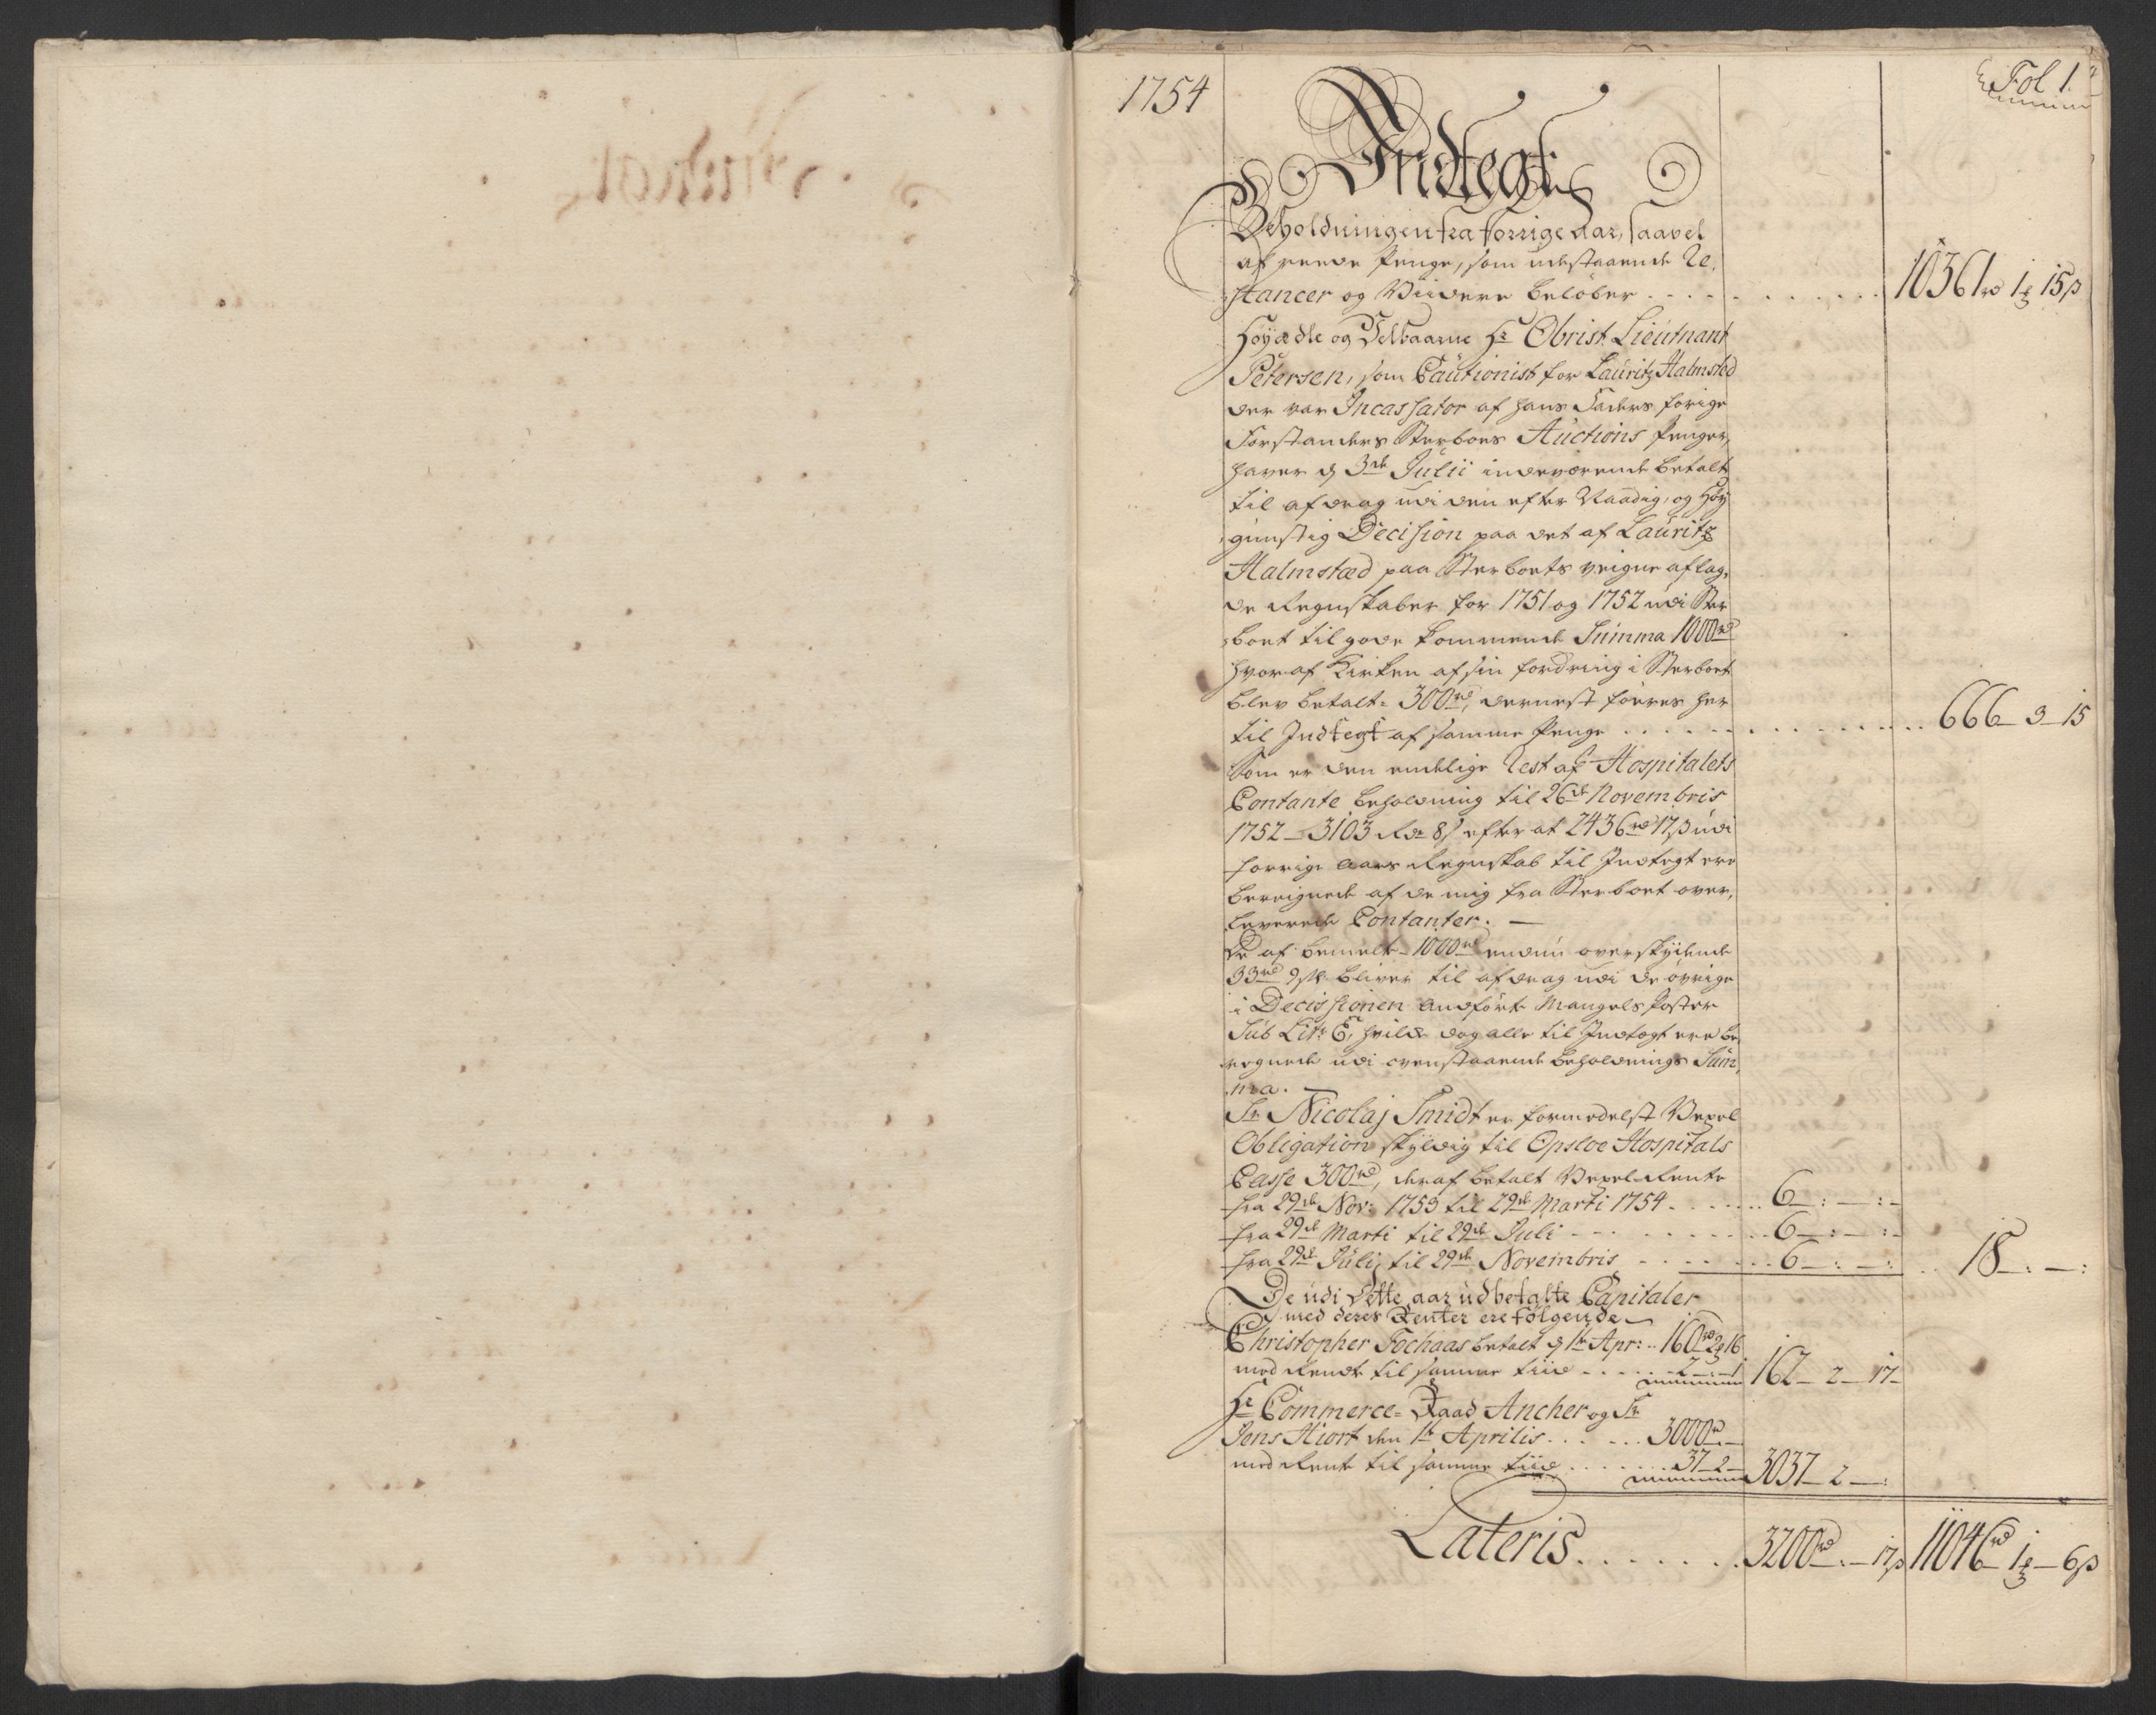 1754
Fol 1.
Indtegt
Beholdningen fra forrige Aar, saavel
af reede Penge, som udestaaende Re,
stancer og Viidere beløber . . . 10361 rd 1 15 s
Høyædle og Velbaarne Hr Obrist Lieutnant
Petersen, som Cautionist for Lauritz Halmsted
der var Incassator af hans Faders forige
Forstanders Sterboes Auctions Penger,
haver d 3de Julii indeværende betalt
til afdrag udi den efter Naadig, og Høy
gunstig Decision paa det af Lauritz
Halmstæd paa Sterboets veigne aflag,
de Regnskaber for 1751 og 1752 udi Ster
boet til gode kommende Summa 1000 rd
hvoraf Kirken af sin fordring i Sterboet
blev betalt 300 rd, dernest føeres her
til Indtegt af samme Penge . . . 666 - 3 - 15
Som er den endelige Rest af Hospitalets
Contante beholdning til 26de Novembris
1752 - 3103 Rdr 8 s efter at 2436 rd 17 s udi
forrige aars Regnskab til Indtegt ere
bereignede af de mig fra Sterboet over,
leverede Contanter. —
De af bemelte 1000 rd endnu overskydende
33 rd 9 s bliver til afdrag udi de øvrige
i Decissionen Andførte Mangels Poster
Sub Litr: E, hvilke dog alle til Indtegt ere be
regnede udi ovenstaaende beholdnings Sum,
ma.
Sr Nicolaj Smidt er formedelst Vexel
Obligation skyldig til Opsloe Hospitals
Casse 300 rd, deraf betalt Vexel Rente
fra 29de Nov: 1753 til 29de Marti 1754 . . . 6 - : - : -
fra 29de Marti til 29de Juli . . . 6 - : - : -
fra 29de Juli til 29de Novembris . . . 6 - : - : . . 18 - : - :
De udi dette aar udbetalte Capitaler
med deres Renter ere følgende
Christopher Fochaas betalt d 1te Apr: . . 160 rd 2 16
med Rente til samme tiid . . . 2 - : - 1 162 - 2 - 17 -
Hr Commerce-Raad Ancher og Sr
Jens Hiort den 1te Aprilis . . . 3000 rd - : -
med Rente til samme tiid . . . 37 - 2 - 3037 - 2 - :
Lateris . . . 3200 rd . - 17 s 11046 rd 1 - 6 s